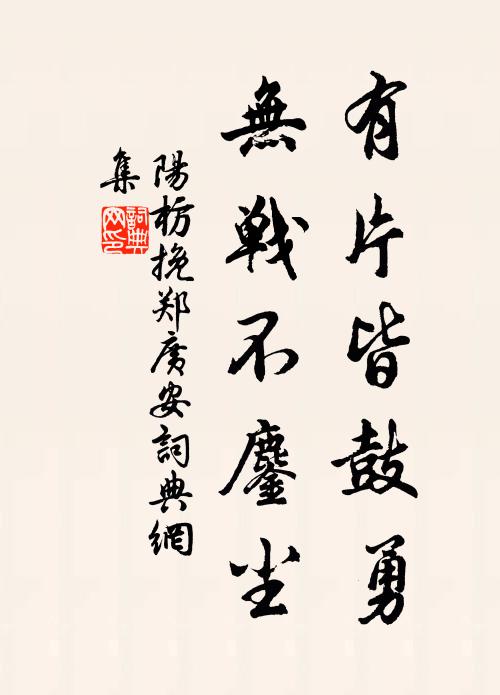 有片皆鼓勇
無戦不鏖尘
陽枋挽郑廣安詞典網
集
詞典
网印